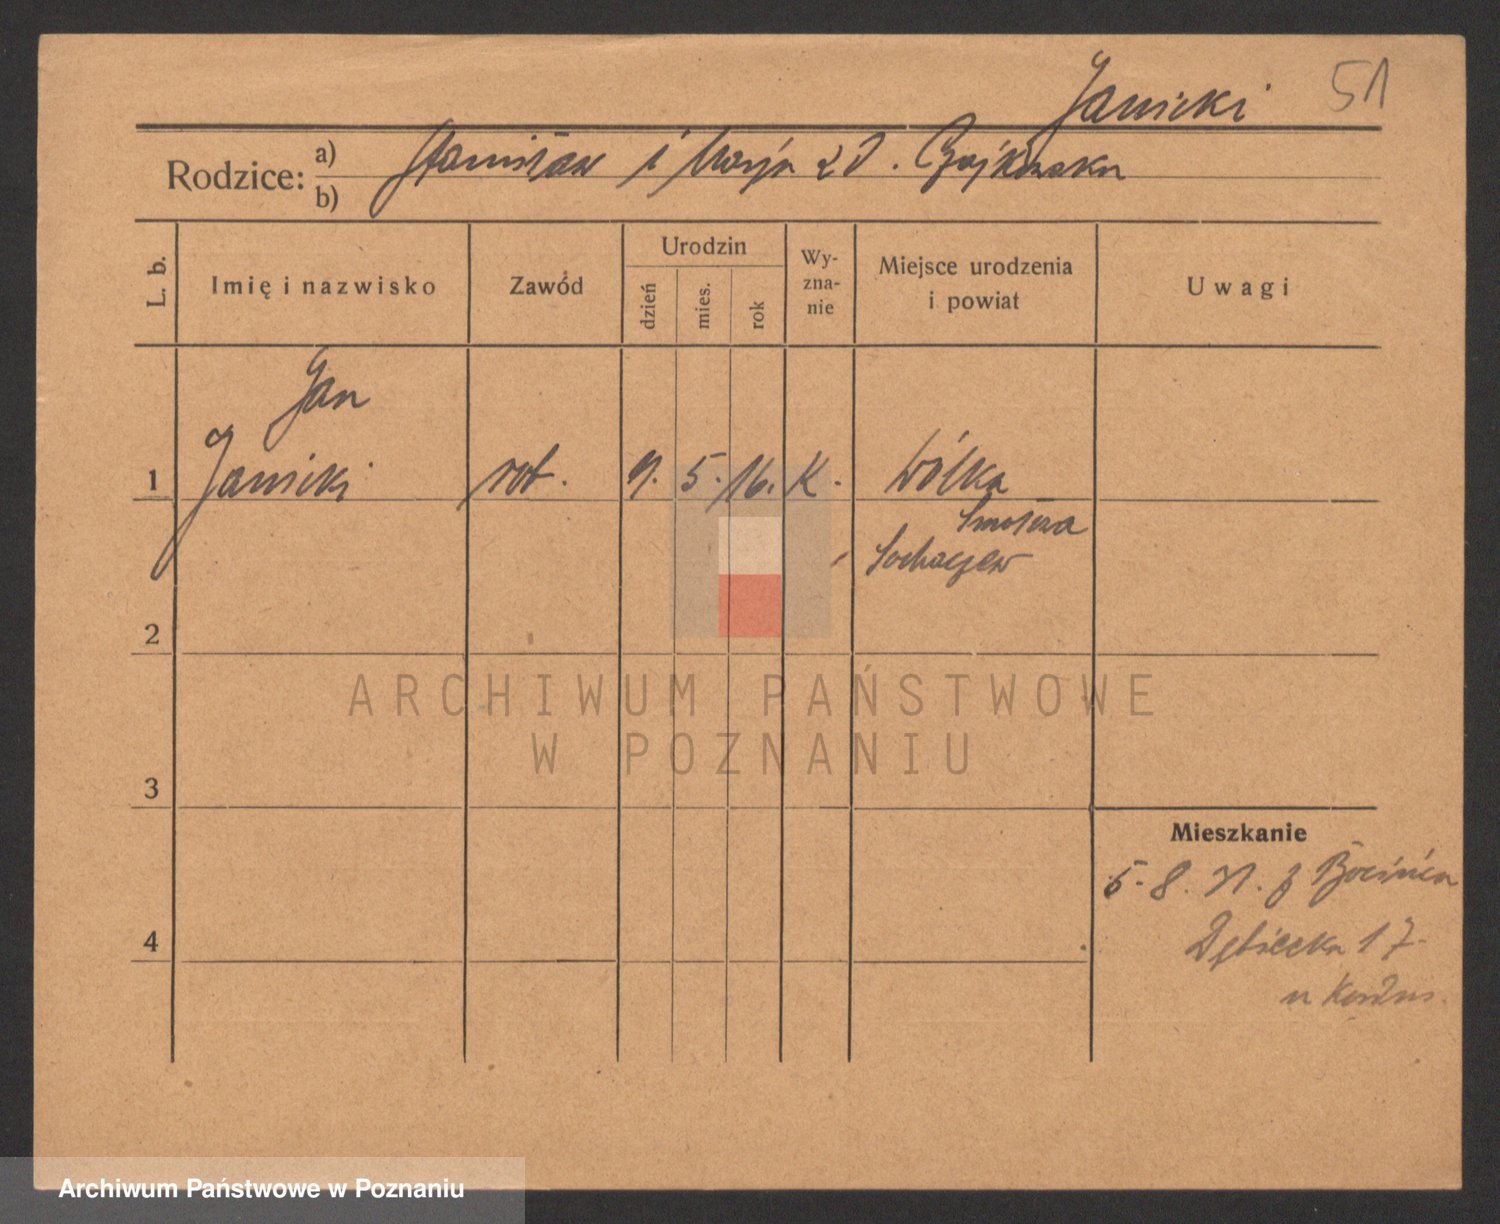 Janicki 51
Rodzice: a) Stanisław i Marja z d. Bajkowska
b)
L. b. Imię i nazwisko Zawód Urodzin dzień mies. rok Wy-zna-nie Miejsce urodzenia i powiat Uwagi
Jan
1 Janicki rob. 9. 5. 16. K. Wólka
Smolana
Sochaczew
2
ARCHIWUM PAŃSTWOWE
W POZNANIU
3
Mieszkanie
5. 8. 31. z
4 Dębiecka 17
u
Archiwum Państwowe w Poznaniu